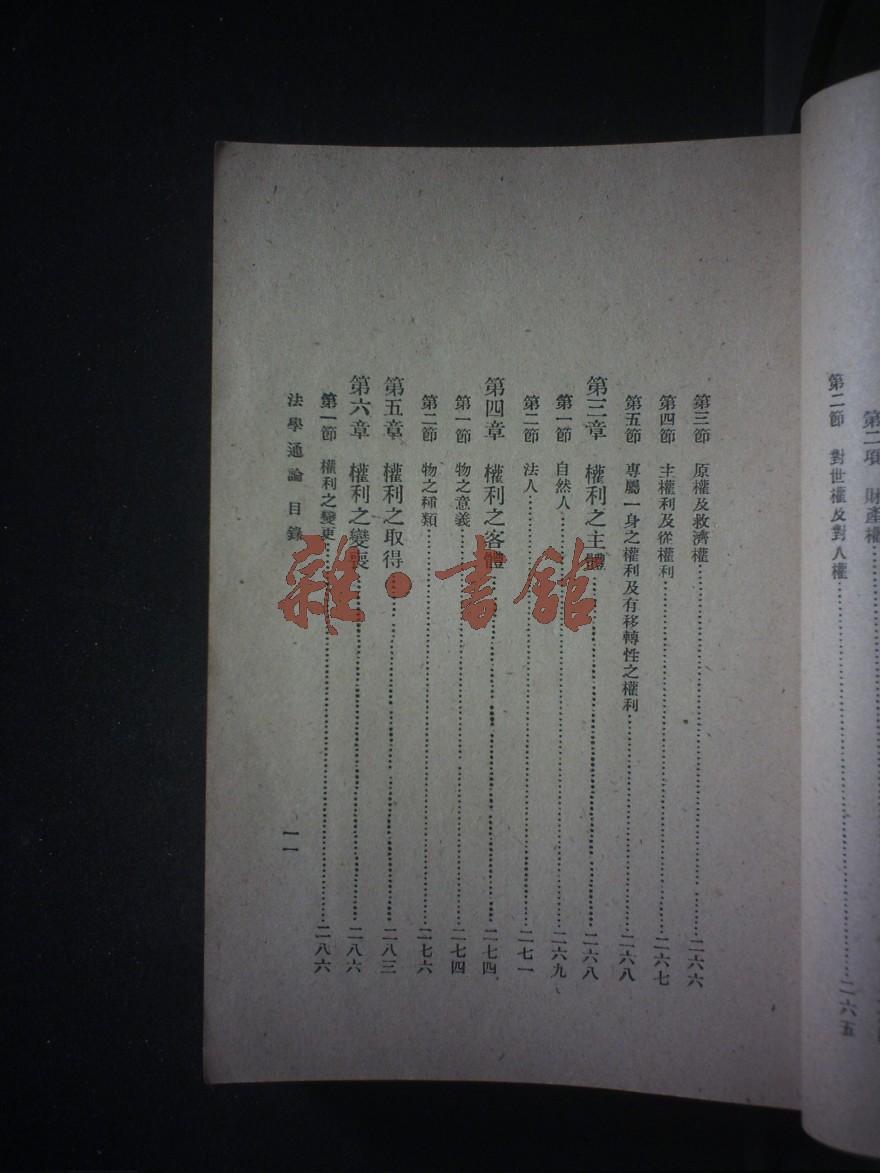 第二項 財產權
第二節 對世權及對人權……二六五
第三節 原權及救濟權……二六六
第四節 主權利及從權利……二六七
第五節 專屬一身之權利及有移轉性之權利……二六八
第三章 權利之主體……二六八
第一節 自然人……二六九
第二節 法人……二七一
第四章 權利之客體……二七四
第一節 物之意義……二七四
第二節 物之種類……二七六
第五章 權利之取得……二八三
第六章 權利之變喪……二八六
第一節 權利之變更……二八六
法學通論 目錄
一一
雜·書館